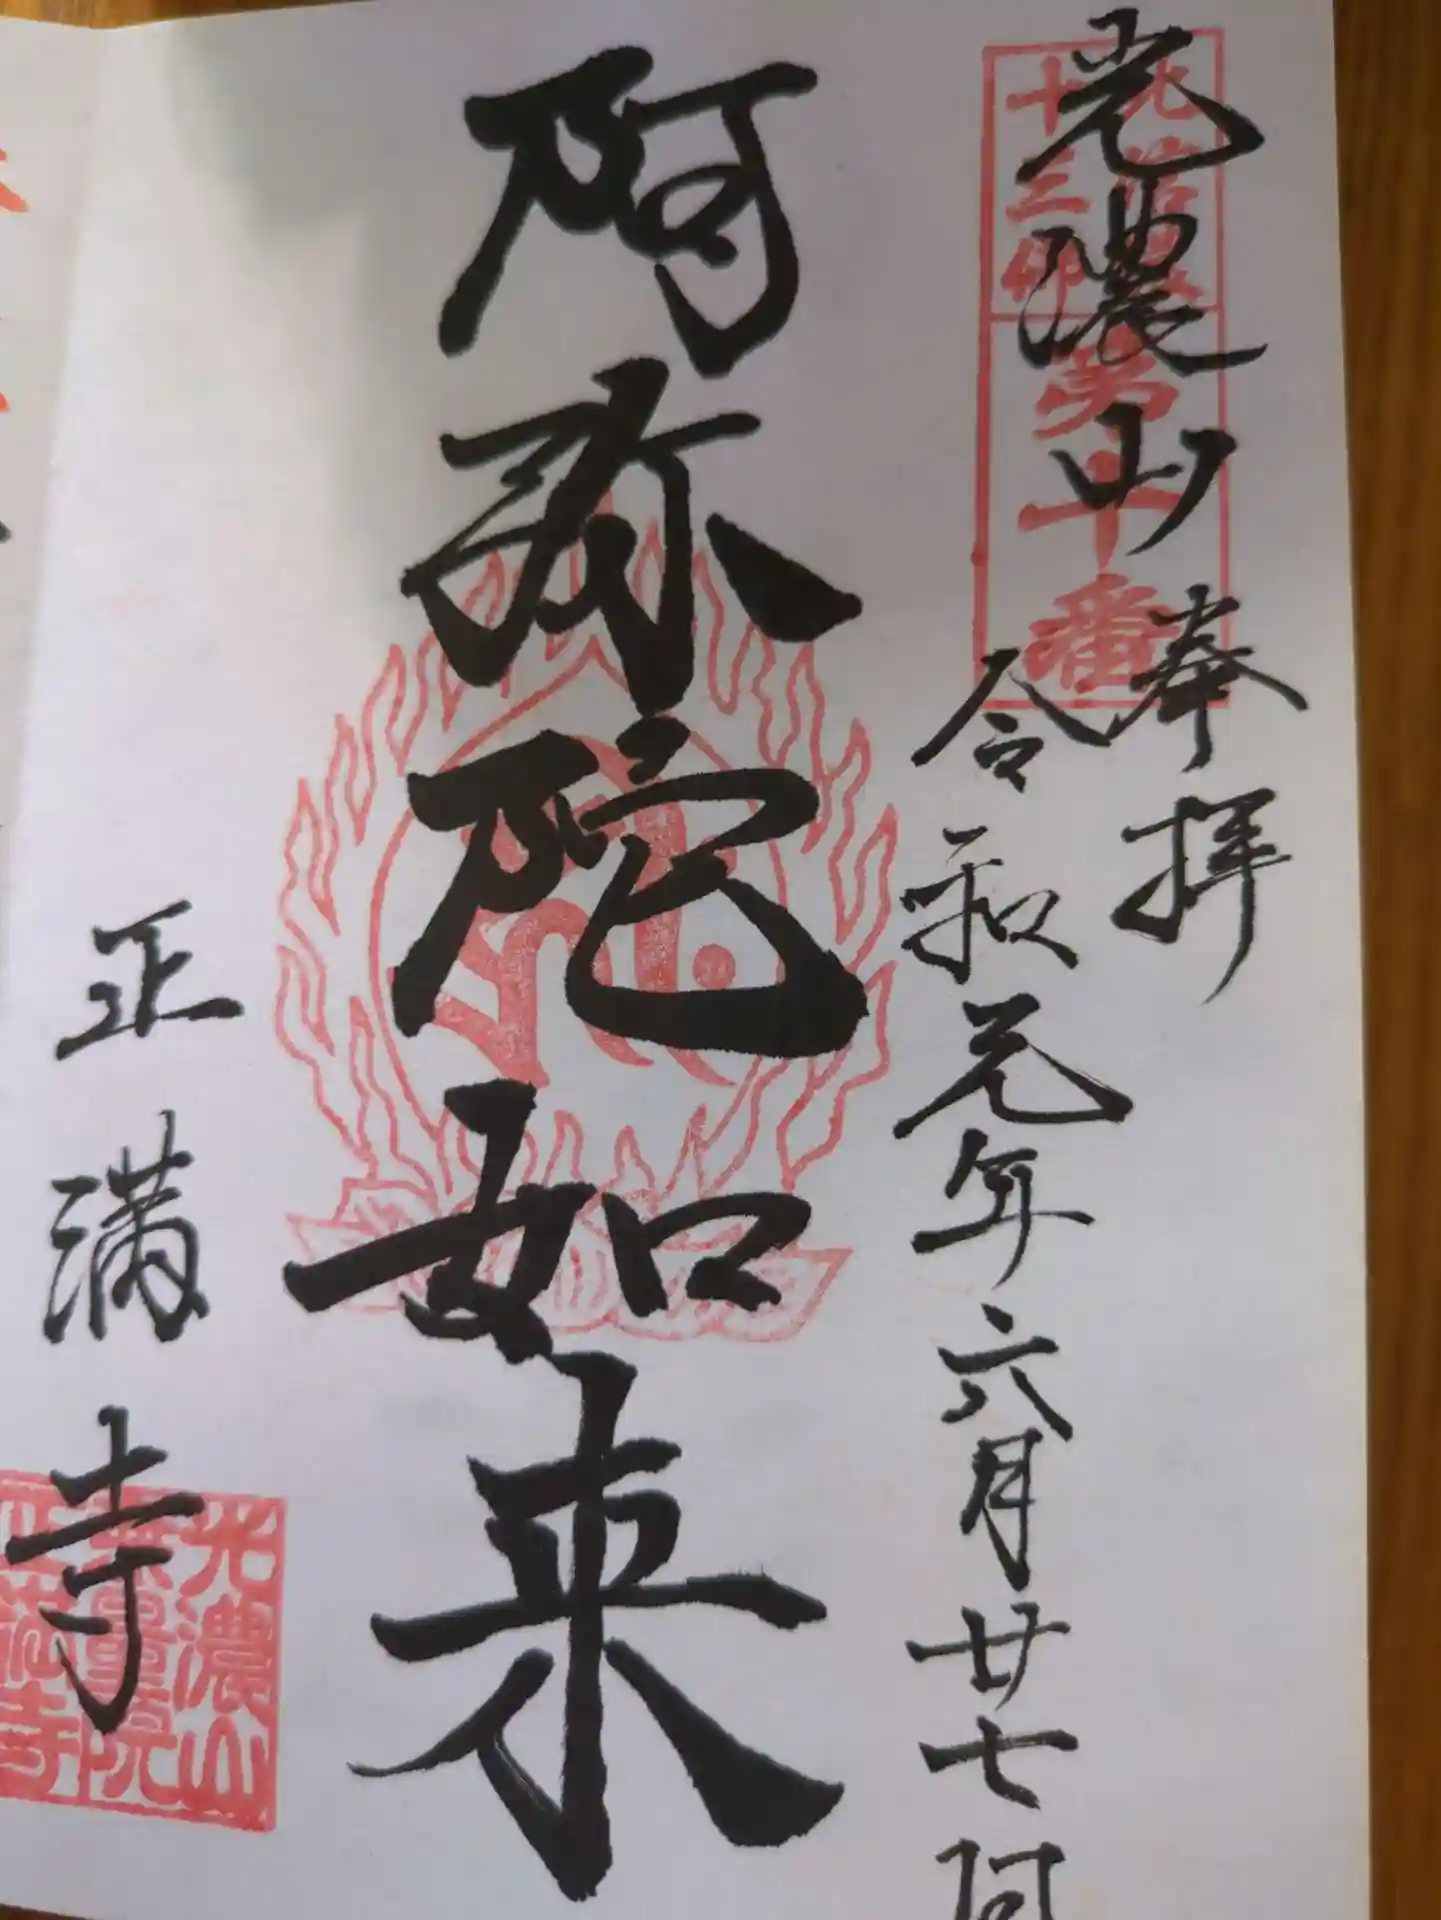 光濃山
奉拝
令和元年六月廿七
阿弥陀如来
正満寺
十三仏
第十番
光濃山
無量院
正満寺